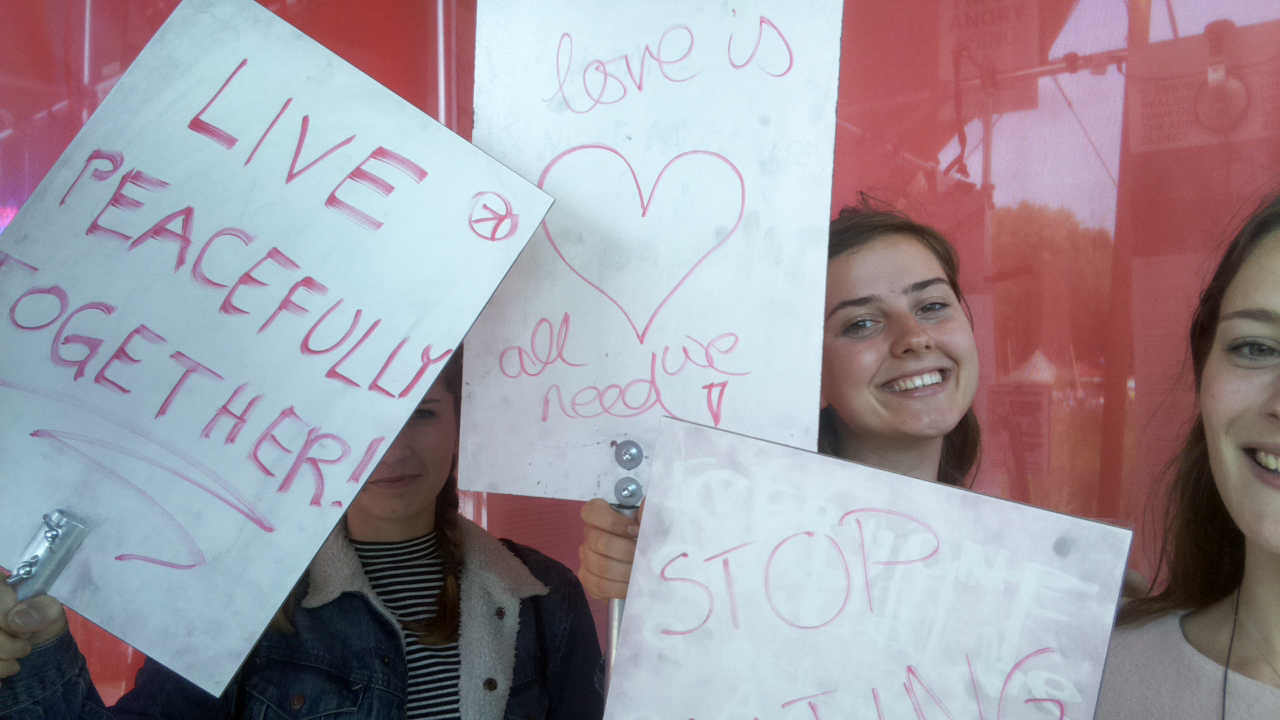 LIVE
PEACEFULLY
TOGETHER!
love is
all we
need
STOP